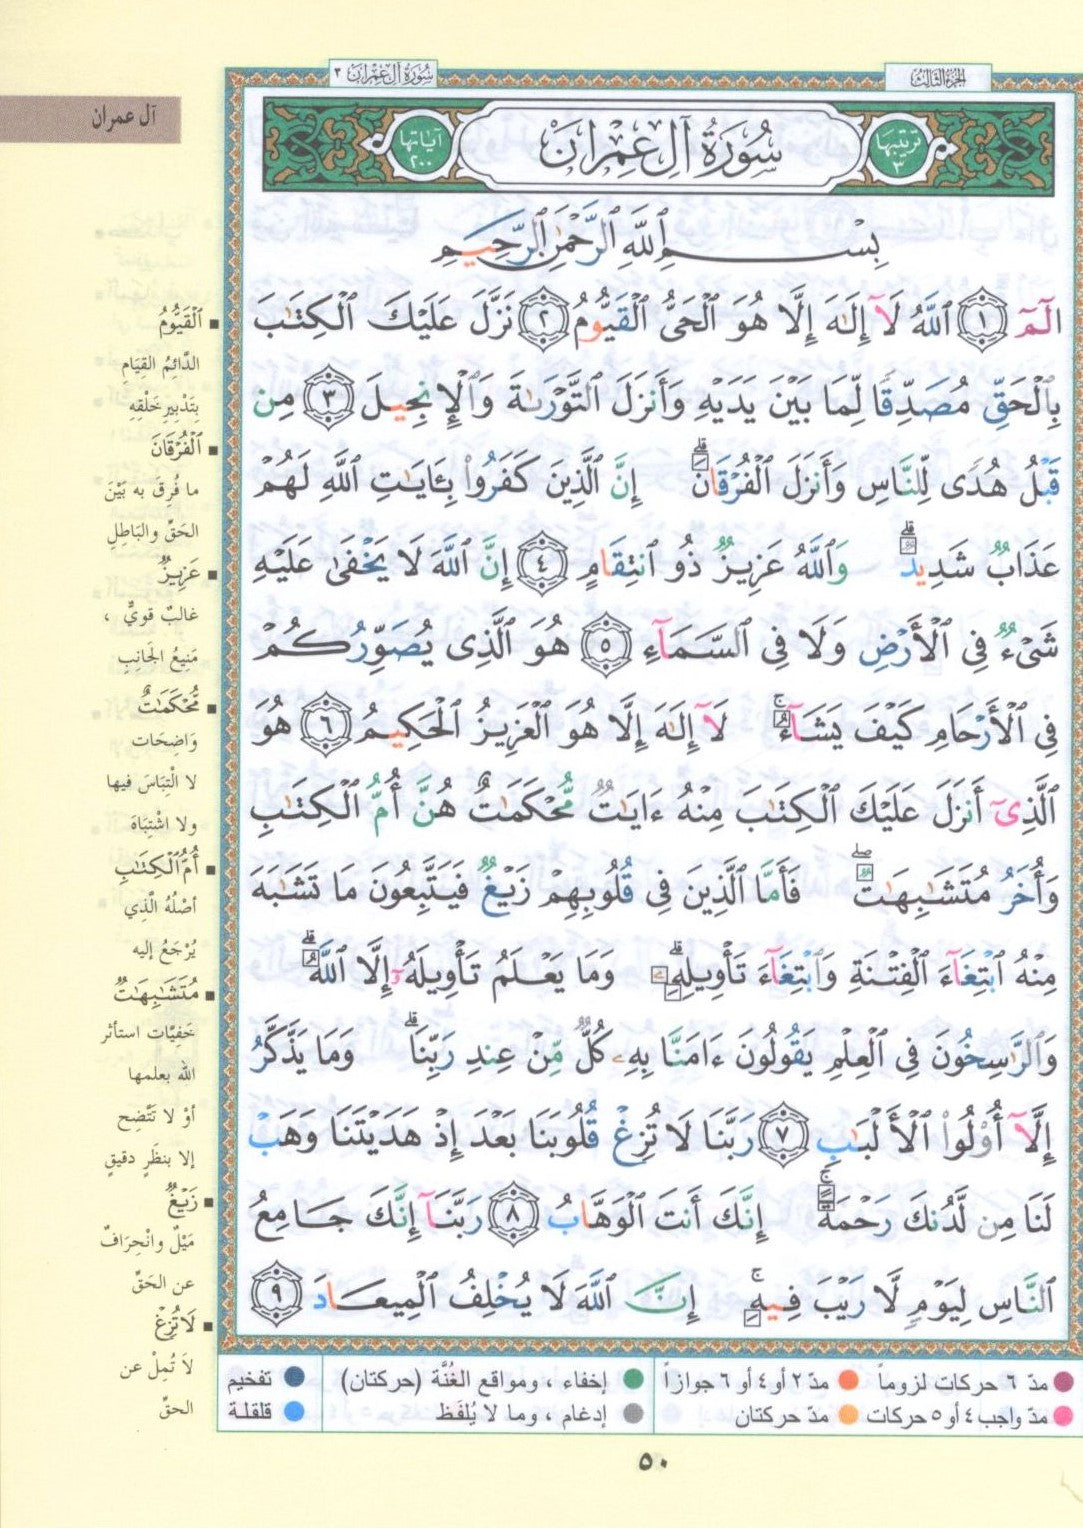 الجزء الثالث
سورة آل عمران ٣
آل عمران
ترتيبها ٣
سُورَةُ آلِ عِمْرَانَ
آياتها ٢٠٠
بِسْمِ ٱللَّهِ ٱلرَّحْمَٰنِ ٱلرَّحِيمِ
الٓمٓ ١ ٱللَّهُ لَآ إِلَٰهَ إِلَّا هُوَ ٱلْحَىُّ ٱلْقَيُّومُ ٢ نَزَّلَ عَلَيْكَ ٱلْكِتَٰبَ
بِٱلْحَقِّ مُصَدِّقًا لِّمَا بَيْنَ يَدَيْهِ وَأَنزَلَ ٱلتَّوْرَىٰةَ وَٱلْإِنجِيلَ ٣ مِن
قَبْلُ هُدًى لِّلنَّاسِ وَأَنزَلَ ٱلْفُرْقَانَ ۗ إِنَّ ٱلَّذِينَ كَفَرُوا۟ بِـَٔايَٰتِ ٱللَّهِ لَهُمْ
عَذَابٌ شَدِيدٌ ۗ وَٱللَّهُ عَزِيزٌ ذُو ٱنتِقَامٍ ٤ إِنَّ ٱللَّهَ لَا يَخْفَىٰ عَلَيْهِ
شَىْءٌ فِى ٱلْأَرْضِ وَلَا فِى ٱلسَّمَآءِ ٥ هُوَ ٱلَّذِى يُصَوِّرُكُمْ
فِى ٱلْأَرْحَامِ كَيْفَ يَشَآءُ ۚ لَآ إِلَٰهَ إِلَّا هُوَ ٱلْعَزِيزُ ٱلْحَكِيمُ ٦ هُوَ
ٱلَّذِىٓ أَنزَلَ عَلَيْكَ ٱلْكِتَٰبَ مِنْهُ ءَايَٰتٌ مُّحْكَمَٰتٌ هُنَّ أُمُّ ٱلْكِتَٰبِ
وَأُخَرُ مُتَشَٰبِهَٰتٌ ۖ فَأَمَّا ٱلَّذِينَ فِى قُلُوبِهِمْ زَيْغٌ فَيَتَّبِعُونَ مَا تَشَٰبَهَ
مِنْهُ ٱبْتِغَآءَ ٱلْفِتْنَةِ وَٱبْتِغَآءَ تَأْوِيلِهِۦ ۗ وَمَا يَعْلَمُ تَأْوِيلَهُۥٓ إِلَّا ٱللَّهُ ۗ
وَٱلرَّٰسِخُونَ فِى ٱلْعِلْمِ يَقُولُونَ ءَامَنَّا بِهِۦ كُلٌّ مِّنْ عِندِ رَبِّنَا ۗ وَمَا يَذَّكَّرُ
إِلَّآ أُو۟لُوا۟ ٱلْأَلْبَٰبِ ٧ رَبَّنَا لَا تُزِغْ قُلُوبَنَا بَعْدَ إِذْ هَدَيْتَنَا وَهَبْ
لَنَا مِن لَّدُنكَ رَحْمَةً ۚ إِنَّكَ أَنتَ ٱلْوَهَّابُ ٨ رَبَّنَآ إِنَّكَ جَامِعُ
ٱلنَّاسِ لِيَوْمٍ لَّا رَيْبَ فِيهِ ۚ إِنَّ ٱللَّهَ لَا يُخْلِفُ ٱلْمِيعَادَ ٩
ٱلْقَيُّومُ
الدَّائِمُ القِيَامِ
بِتَدْبِيرِ خَلْقِهِ
ٱلْفُرْقَانَ
ما فُرِقَ به بَيْنَ
الحَقِّ والبَاطِلِ
عَزِيزٌ
غالبٌ قويٌّ ،
مَنِيعُ الجَانِبِ
مُّحْكَمَٰتٌ
وَاضِحَات
لا الْتِبَاسَ فيها
ولا اشْتِبَاهَ
أُمُّ ٱلْكِتَٰبِ
أصْلُهُ الَّذِي
يُرْجَعُ إليه
مُتَشَٰبِهَٰتٌ
خَفِيَّات استأثر
الله بعلمها
أوْ لا تَتَّضِح
إلا بنظَرٍ دقيقٍ
زَيْغٌ
مَيْلٌ وانْحِرَافٌ
عن الحَقِّ
لَا تُزِغْ
لاَ تُمِلْ عن
الحقِّ
مدّ ٦ حركات لزوماً
مدّ ٢ أو ٤ أو ٦ جوازاً
إخفاء ، ومواقع الغُنَّة (حركتان)
تفخيم
مدّ واجب ٤ أو ٥ حركات
مدّ حركتان
إدغام ، وما لا يُلفَظ
قلقلة
٥٠